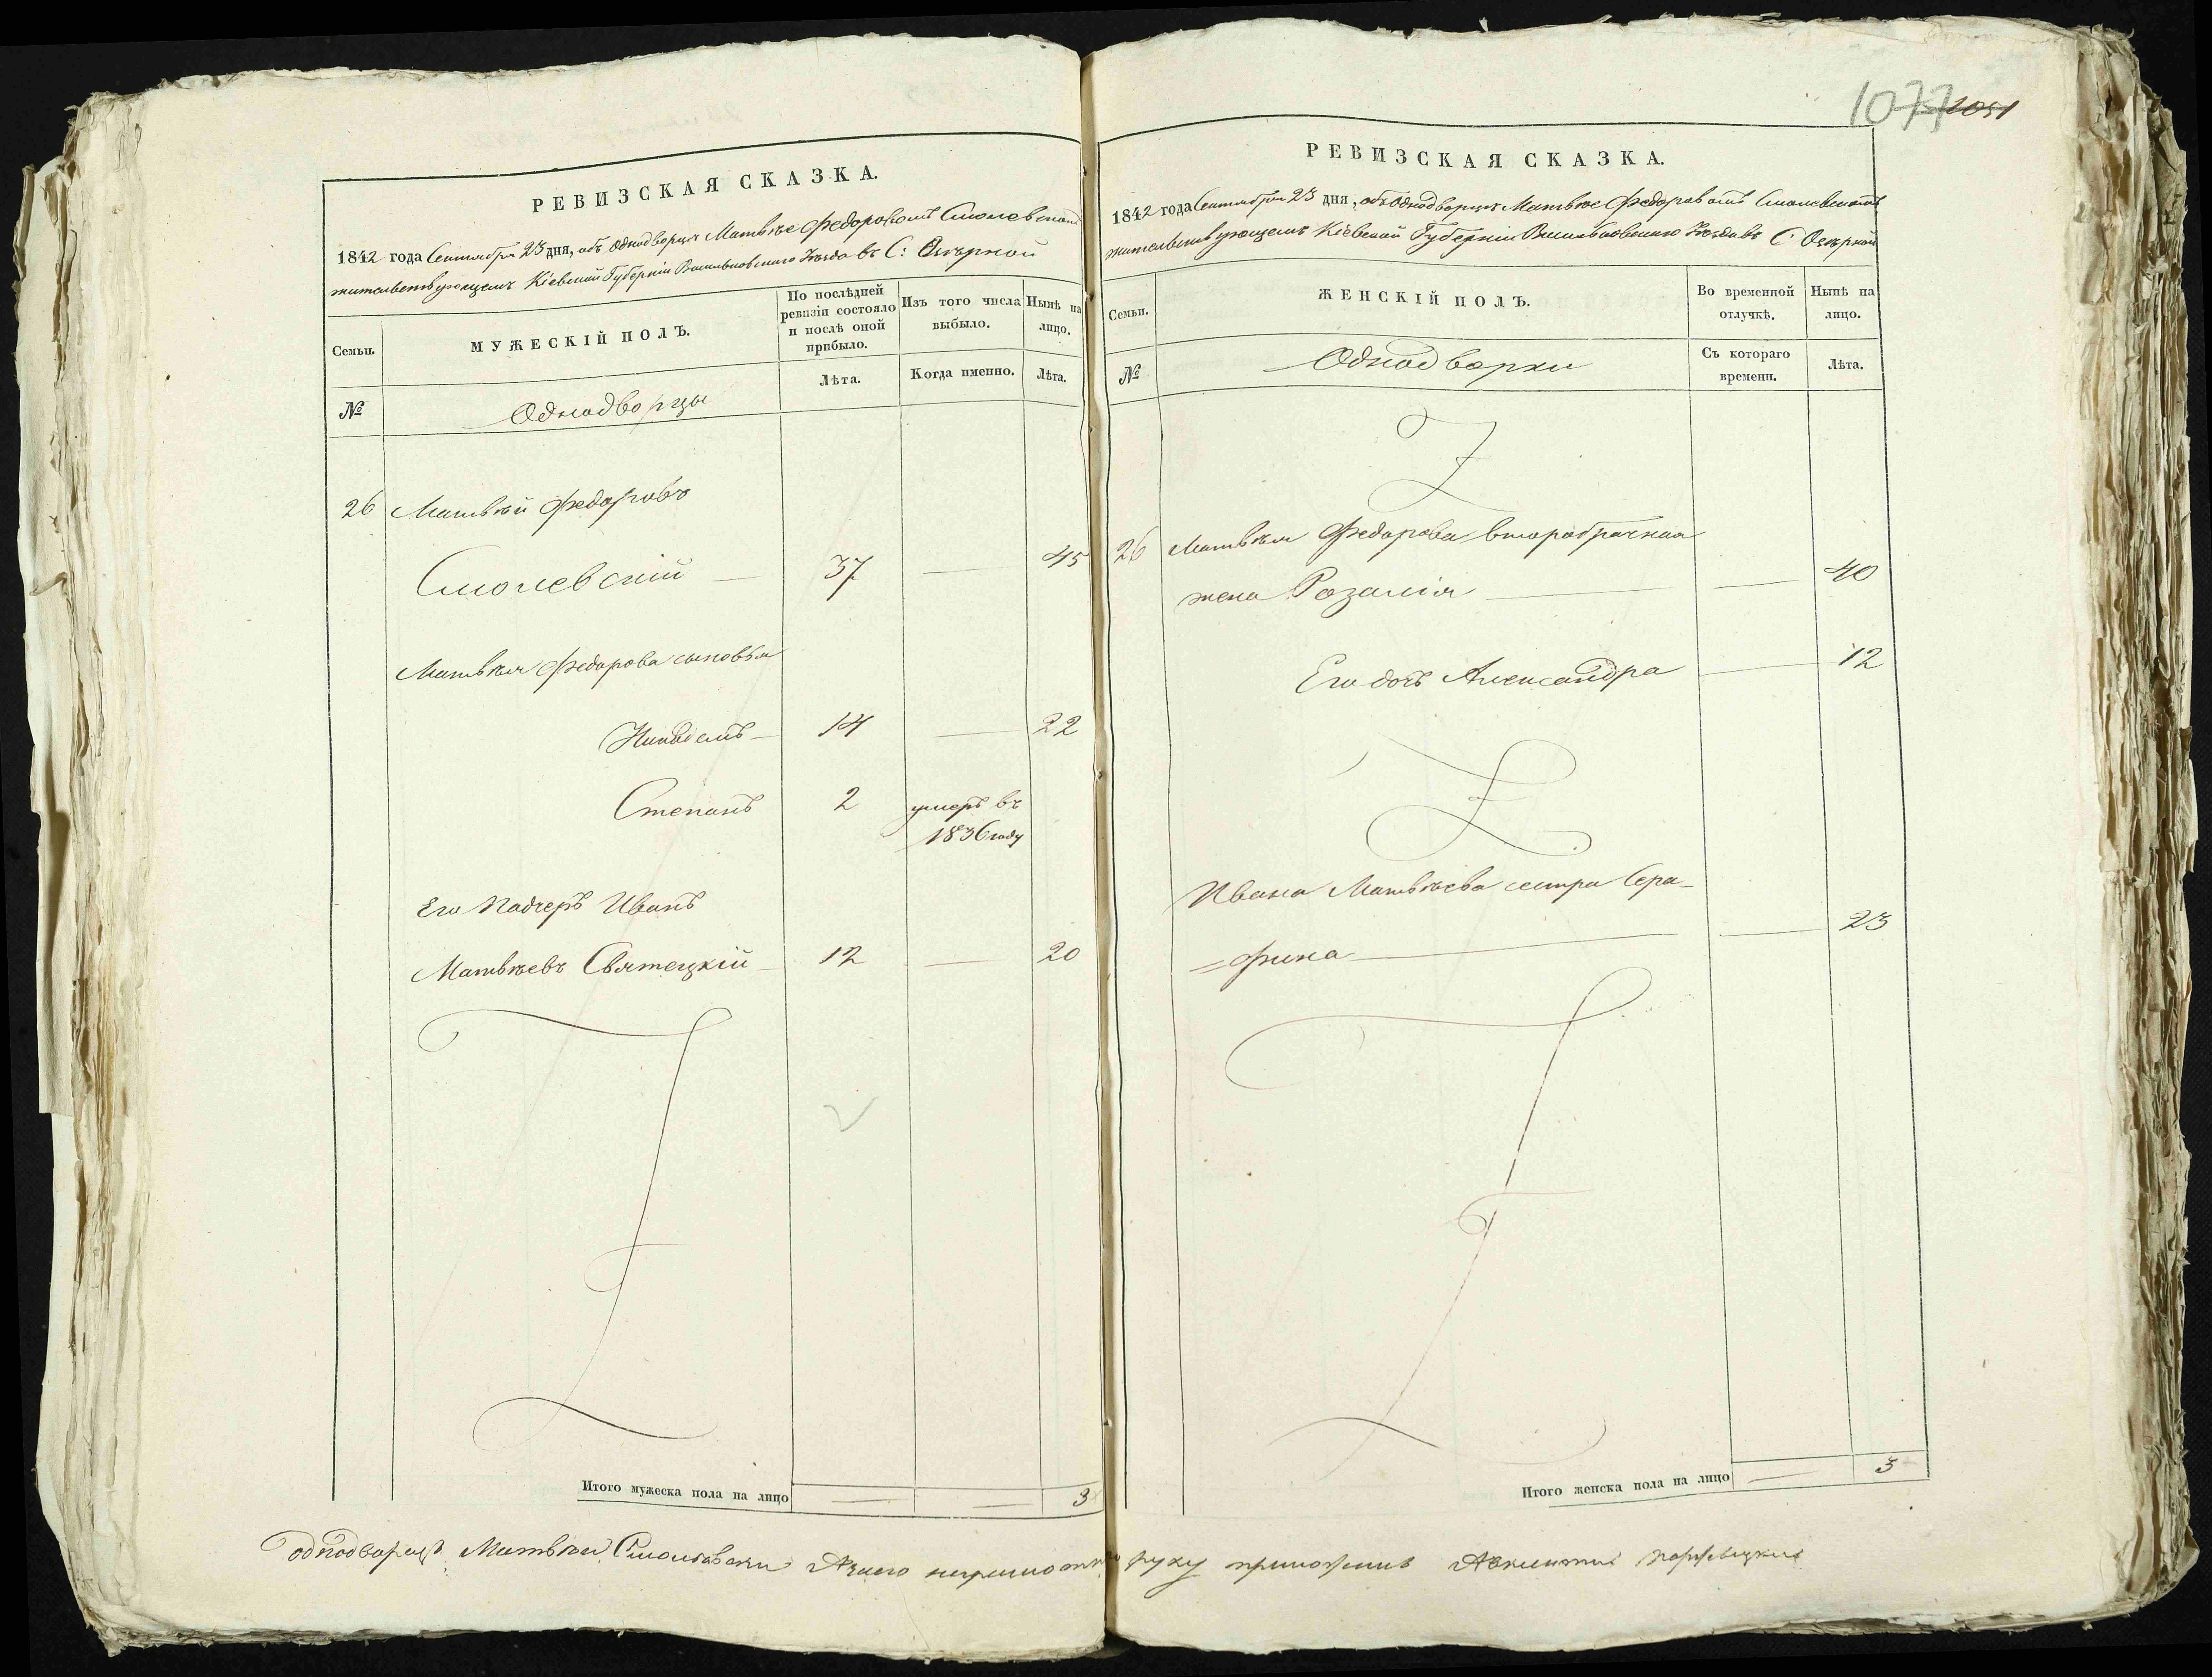 РЕВИЗСКАЯ СКАЗКА.
1842 года Сентября 23 дня, объ Однодворцѣ Матвѣе Федоровомъ Смолевскомъ
жительствующемъ Кіевской Губерніи Васильковскаго Уѣзда въ С: Озѣрной
Семьи.
МУЖЕСКІЙ ПОЛЪ.
По послѣдней
ревизіи состояло
и послѣ оной
прибыло.
Изъ того числа
выбыло.
Нынѣ на
лицо.
№
Однодворцы
Лѣта.
Когда именно.
Лѣта.
26 Матвѣй Федоровъ
Смолевскій — 37 — 45
Матвѣя Федорова сыновья
Никодемъ — 14 — 22
Степанъ 2 умеръ въ
1836 году
Его Падчеръ Иванъ
Матвѣевъ Святецкій — 12 — 20
Итого мужеска пола на лицо — — 3
1077 1051
РЕВИЗСКАЯ СКАЗКА.
1842 года Сентября 23 дня, объ Однодворцѣ Матвѣе Федоровомъ Смолевскомъ
жительствующемъ Кіевской Губерніи Васильковскаго Уѣзда въ С: Озѣрной
Семьи.
ЖЕНСКІЙ ПОЛЪ.
Во временной
отлучкѣ.
Нынѣ на
лицо.
№
Однодворки
Съ котораго
времени.
Лѣта.
26 Матвѣя Федорова второбрачная
жена Розалія — — 40
Его дочь Александра — 12
Ивана Матвѣева сестра Сера-
=фина — — 23
Итого женска пола на лицо — 3
однодворецъ Матвѣй руку приложилъ